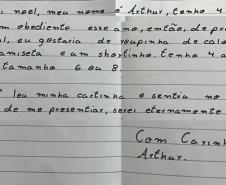 . noel, meu nome é Arthur, tenho 4
m obediente esse ano, então, de pr
l, eu gostaria de roupinha de calo
amiseta e um shortinho. tenho 4 a
tamanho 6 ou 8.
leu minha cartinha e sentiu no
de me presentiar, serei eternamente
Com Carinh
Arthur.